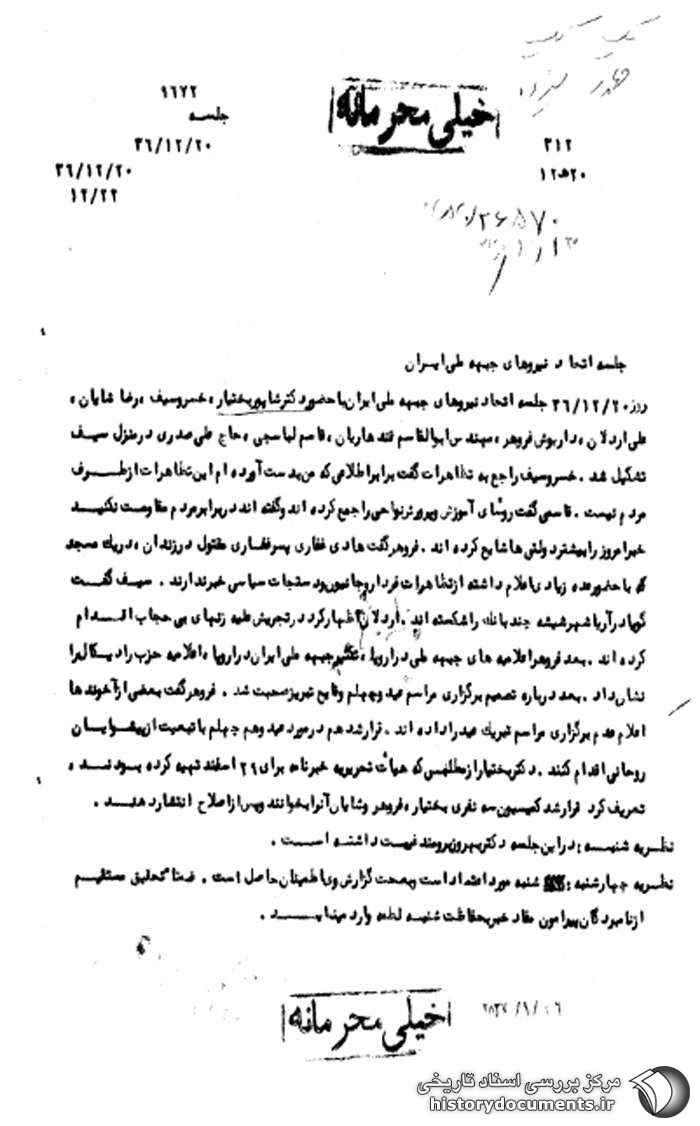 خیلی محرمانه
۹۶۷۲
جلسه
۳۶/۱۲/۲۰
۳۶/۱۲/۲۰
۱۲/۲۲
۳۱۲
۲۰ه۱۲
۲۶۵۷۰
جلسه اتحاد نیروهای جبهه ملی ایران
روز ۳۶/۱۲/۲۰ جلسه اتحاد نیروهای جبهه ملی ایران با حضور دکتر شاپور بختیار، خسرو سیف، رضا شایان،
علی اردلان، داریوش فروهر، مهندس ابوالقاسم قندهاریان، قاسم لباسچی، حاج علی صدری در منزل سیف
تشکیل شد. خسرو سیف راجع به تظاهرات گفت برابر اطلاعی که من بدست آورده ام این تظاهرات از طرف
مردم نیست. قاسمی گفت روسای آموزش و پرورش نواحی را جمع کرده اند و گفته اند در برابر مردم مقاومت نکنید
خبر امروز را بیشتر دولتی ها شایع کرده اند. فروهر گفت هادی غفاری پسر غفاری مقتول در زندان، در یک مسجد
که با حضور عده زیادی اعلام داشته از تظاهرات فردا روحانیون و دستجات سیاسی خبر ندارند. سیف گفت
گویا در آریا شهر شیشه چند بانک را شکسته اند. اردلان اظهار کرد در تجریش علیه زنهای بی حجاب اقدام
کرده اند. بعد فروهر اعلامیه های جبهه ملی در اروپا، تکثیر جبهه ملی ایران در اروپا، اعلامیه حزب رادیکال را
نشان داد. بعد درباره تصمیم برگزاری مراسم عید و چهلم وقایع تبریز صحبت شد. فروهر گفت بعضی از آخوندها
اعلام عدم برگزاری مراسم تبریک عید را داده اند. قرار شد هم در مورد عید و هم چهلم با تبعیت از پیشوایان
روحانی اقدام کنند. دکتر بختیار از مطلبی که هیأت تحریریه خبرنامه برای ۲۹ اسفند تهیه کرده بودند،
تعریف کرد قرار شد کمیسیون سه نفری بختیار، فروهر و شایان آنرا بخوانند و پس از اصلاح انتشار دهند.
نظریه شنبه: در این جلسه دکتر بهروز برومند غیبت داشته است.
نظریه چهارشنبه: شنبه مورد اعتماد است و بصحت گزارش وی اطمینان حاصل است. ضمنا تحقیق مستقیم
از نامبردگان پیرامون مفاد خبر بحفاظت شنبه لطمه وارد مینماید.
خیلی محرمانه
۲۵۳۷/۱/۰۶
مرکز بررسی اسناد تاریخی
historydocuments.ir